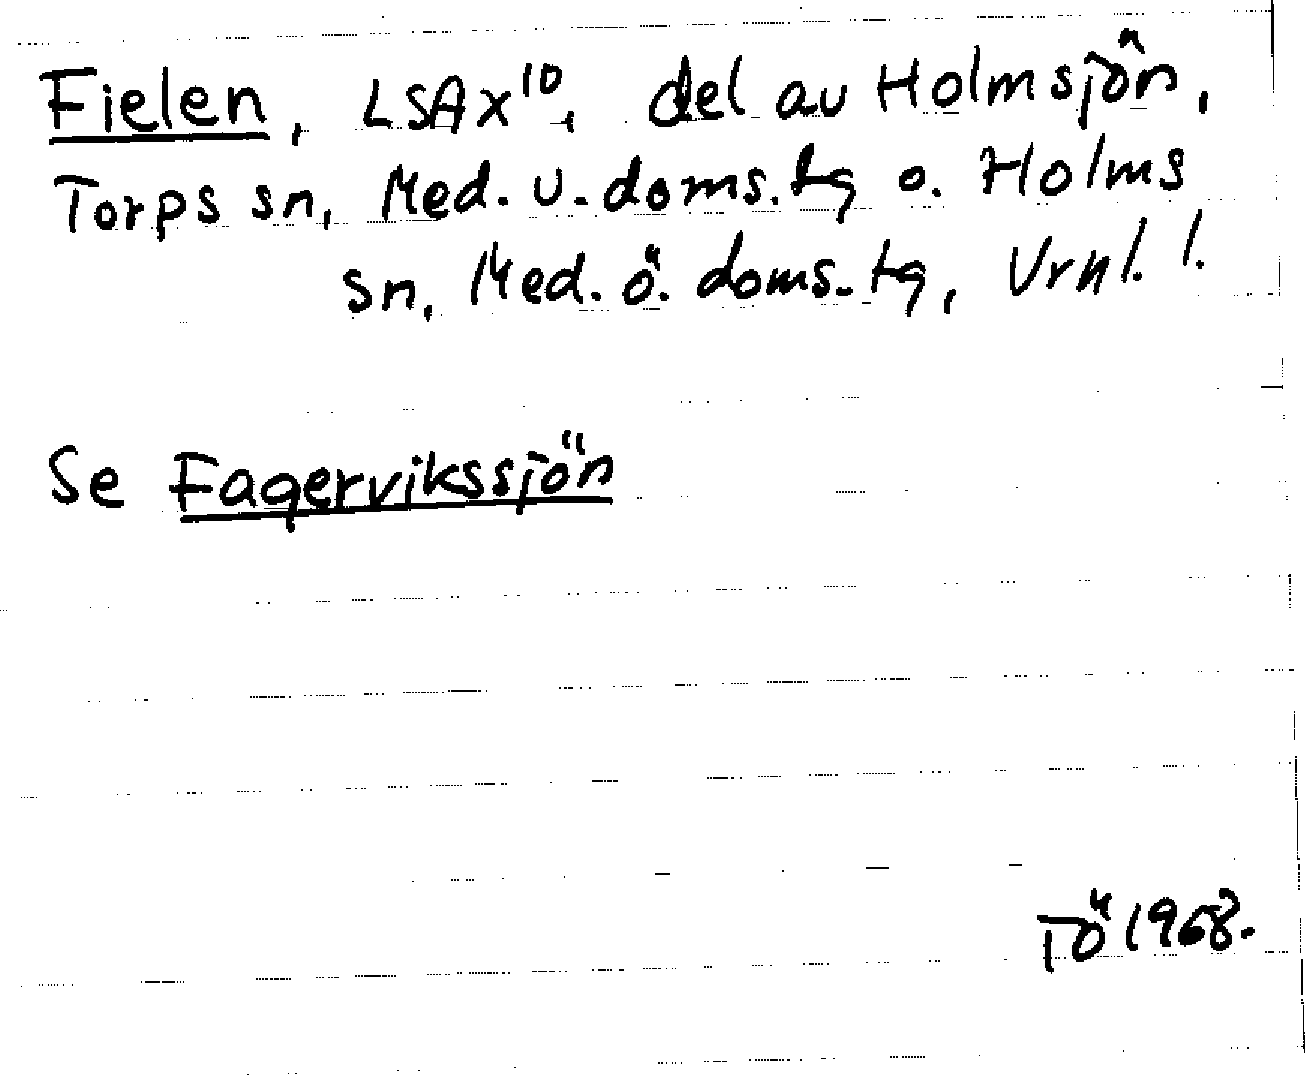 Fielen, LSA X¹⁰, del av Holmsjön,
Torps sn, Med. v. doms. tg o. Holms
sn, Med. ö. doms. tg, Vrnl. l.
Se Fagervikssjön
TÖ 1968.